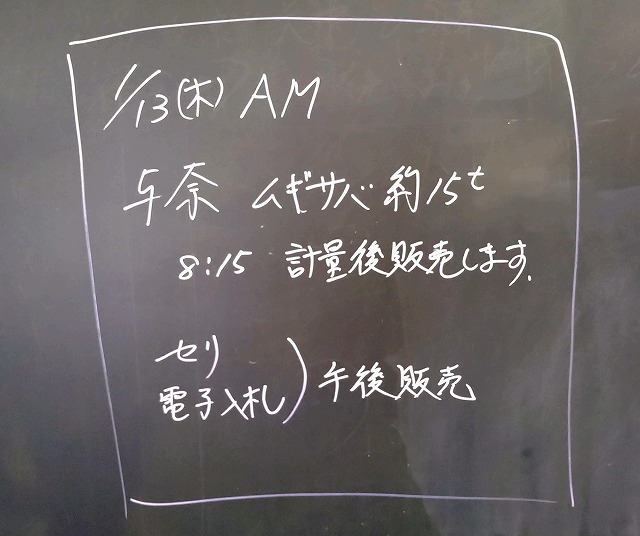 1/13(木) AM
与奈 ムギサバ 約15t
8:15 計量後販売します.
セリ
電子入札 ) 午後販売